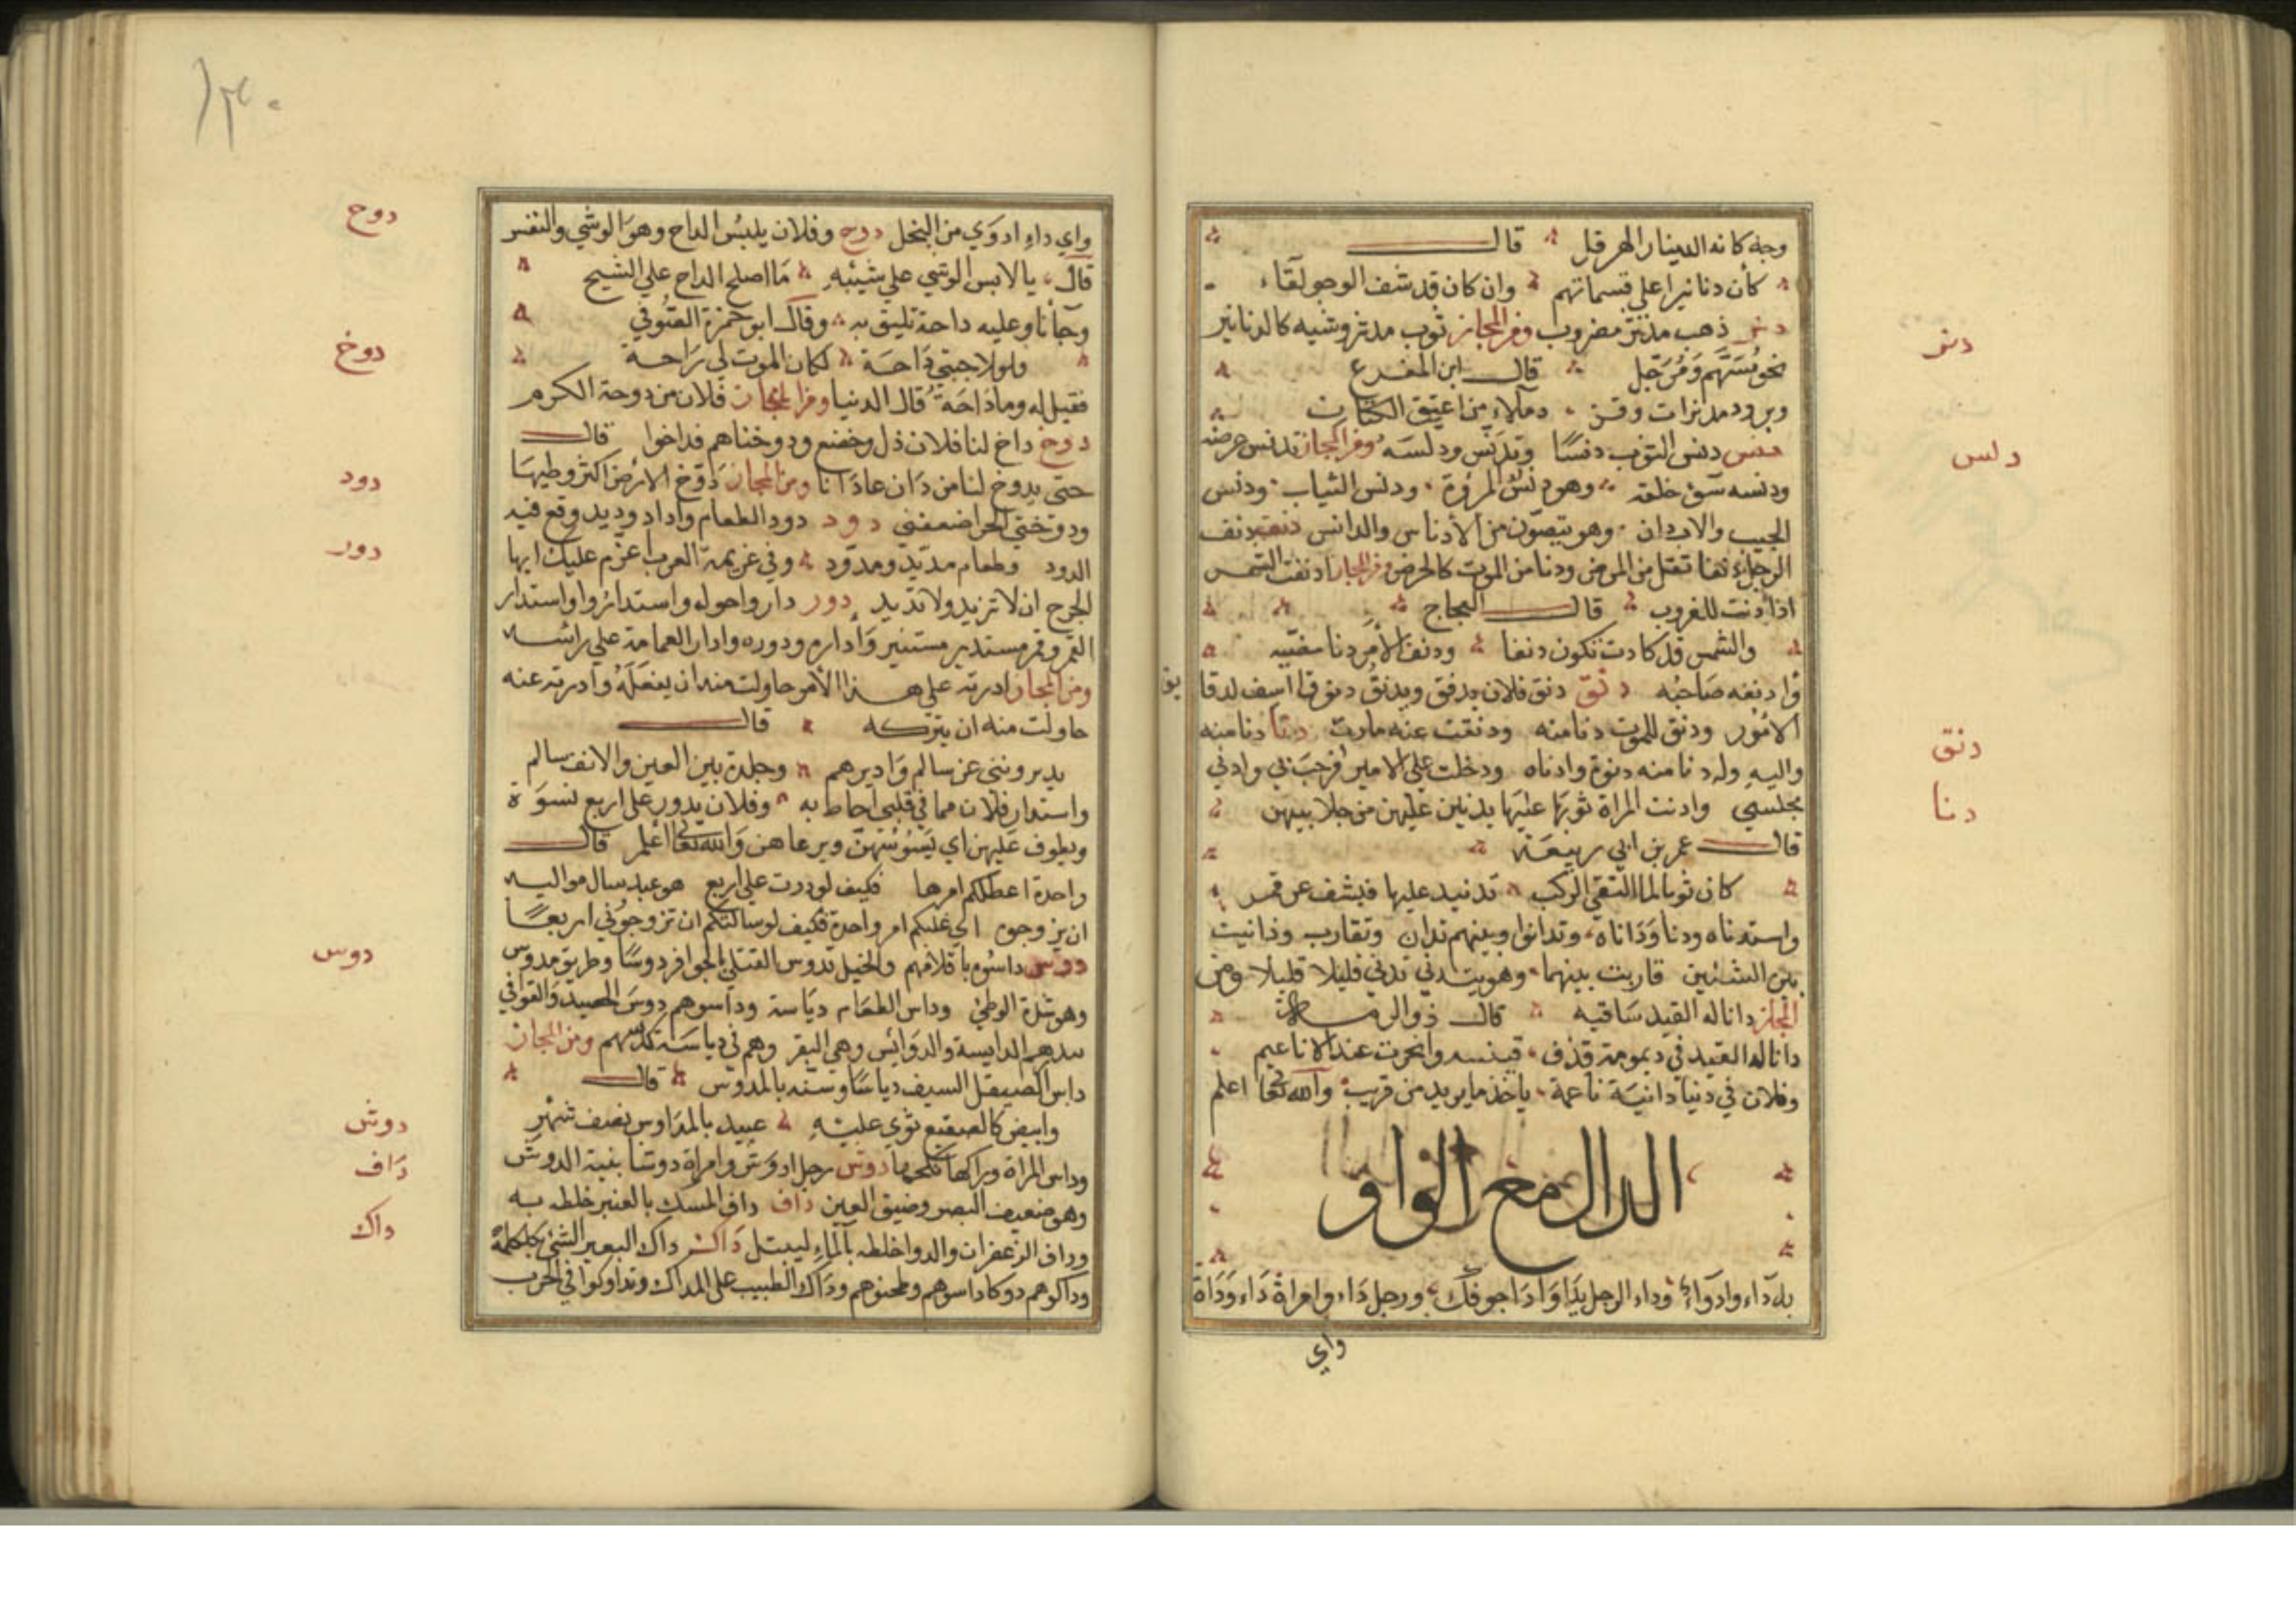 وجه كانه الدينار الهرقل قال
كأن دنانيرا علي قسماتهم وان كان قد شف الوجوه لقاء
دنر ذهب مدنر مضروب ومن المجاز ثوب مدنر وشيه كالدنانير
نحو مسهم ومرجل قال ابن المفرغ
وبرود مدنرات وقز وملاء من اعتق الكتان
دنس دنس الثوب دنسا وتدنس ودنسه ومن المجاز تدنس عرضه
ودنسه سوء خلقه وهو دنس المروة ودنس الثياب ودنس
الجيب والاردان وهو يتصون من الأدناس والدانس دنف دنف
الرجل دنفا ثقل من المرض ودنا من الموت كالحرض ومن المجاز ادنفت الشمس
اذا دنت للغروب قال العجاج
والشمس قد كادت تكون دنفا ودنف الأمر دنا مضيه
وادنفه صاحبه دنق دنق فلان يدنق ويدنق دنوقا اسف لدقا يق
الامور ودنق للموت دنا منه ودنقت عنه مارت دنا دنا منه
واليه وله دنا منه دنوة وادناه ودخلت علي الامير فرحب بي وادني
مجلسي وادنت المراة ثوبها عليها يدنين عليهن من جلابيبهن
قال عمر بن ابي ربيعة
كان ثوبا لما التقي الركب تدنيه عليها فيشف عن قمر
واستدناه ودنا وداناه وتدانوا وبينهم تدان وتقارب ودانيت
بين الشئين قاربت بينهما وهو يتدني تدني قليلا قليلا ومن
المجاز دانا له القيد ساقيه قال ذو الرمة
دانا له القيد في ديمومة قذف قينيه وانحرت عنه الاناعيم
وفلان في دنيا دانية ناعمة ياخذ ما يريد من قريب والله تعا اعلم
الدال مع الواو
به داء وادواء وداء الرجل يدا وادا جوفك ورجل داء وامراة داء وداة
واي
دنر
دلس
دنق
دنا
واي داء ادوي من البخل دوح وفلان يلبس الداح وهو الوشي والنقس
قال يا لابس الوشي علي شيبه ما اصلح الداح علي الشيح
وجأنا وعليه داحة تليق به وقال ابو حمزة الصوفي
ولولا جبتي داحة لكان الموت لي راحة
فقيل له وما داحة قال الدنيا ومن المجاز فلان من دوحة الكرم
دوخ داخ لنا فلان ذل وخضع ودوخناهم فداخوا قال
حتي يدوخ لنا من دان عادانا ومن المجاز دوخ الارض اكثر وطيها
ودوختني الحر اضعفني دود دود الطعام واداد وديد وقع فيه
الدود وطعام مديد ومدود وفي عزيمة العرب اعزم عليك ايها
الجرح ان لا تزيد ولا تديد دور دار واحوله واستداروا واستدار
القمر وقمر مستدير مستنير واداره ودوره وادار العمامة علي راسه
ومن المجاز ادرته علي هذا الأمر حاولت منه ان يفعله وادرته عنه
حاولت منه ان يتركه قال
يديرونني عن سالم واديرهم وجلدة بين العين والانف سالم
واستدار فلان مما في قلبي احاط به وفلان يدور علي اربع نسوة
ويطوف عليهن اي يسوسهن ويرعاهن والله تعا اعلم قال
واحدة اعطلكم امرها فكيف لو درت علي اربع هو عبد سال مواليه
ان يزوجوه اي غلبكم امر واحدة فكيف لو سالتكم ان تزوجوني اربعا
دوس داسوه باقدامهم والخيل تدوس القتلي بالحوافر دوسا وطريق مدوس
وهو شدة الوطئ وداس الطعام دياسة وداسوهم دوس الحصيد والقوا في
بيدهم الدايسة والدوائس وهي البقر وهم في دياسة كدسهم ومن المجاز
داس الصيقل السيف دياسا وسنه بالمدوس قال
وابيض كالصقيع ثوي عليه عبيد بالمداوس نصف شهر
وداس المراة وراكها نكحها دوش رجل ادوش وامراة دوشا بنية الدوش
وهو ضعيف البصر وضيق العين داف داف المسك بالعنبر خلطه به
وداف الزعفران والدوا خلطه بالماء ليبتل داك داك البعير الشئ بكلكله
وداكوهم دوكا داسوهم وطحنوهم وداك الطبيب علي المداك وتداوكوا في الحرب
دوح
دوخ
دود
دور
دوس
دوش
داف
داك